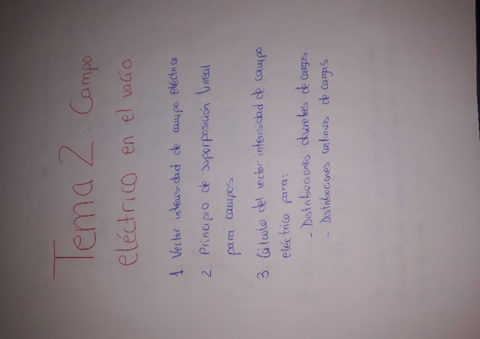 Tema 2: Campo
eléctrico en el vacío
1 Vector intensidad de campo eléctrico
2. Principio de superposición lineal
para campos
3. Cálculo del vector intensidad de campo
eléctrico para:
- Distribuciones discretas de cargas.
- Distribuciones continuas de cargas.